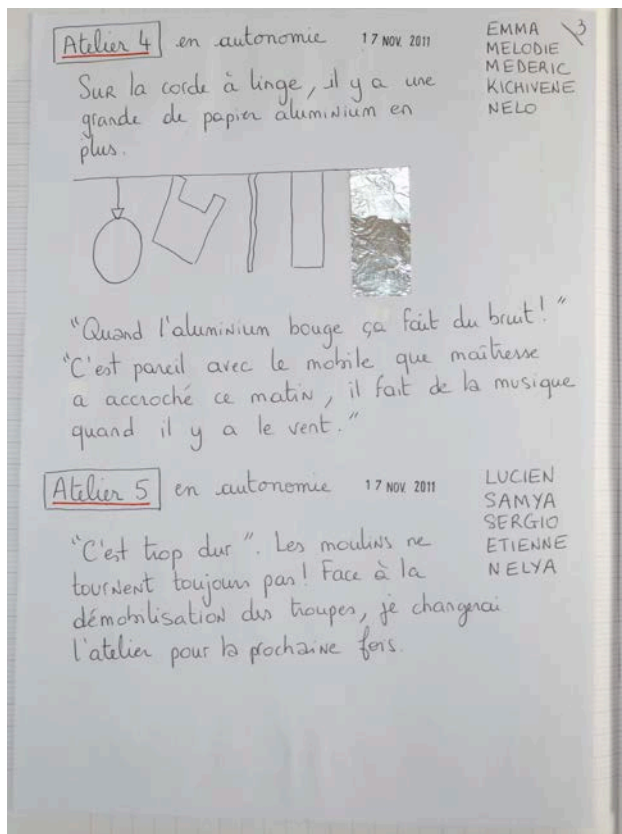 Atelier 4 en autonomie 17 NOV. 2011
EMMA 3
MELODIE
MEDERIC
KICHIVENE
NELO
Sur la corde à linge, il y a une
grande de papier aluminium en
plus.
"Quand l'aluminium bouge ça fait du bruit!"
"C'est pareil avec le mobile que maîtresse
a accroché ce matin, il fait de la musique
quand il y a le vent."
Atelier 5 en autonomie 17 NOV. 2011
LUCIEN
SAMYA
SERGIO
ETIENNE
NELYA
"C'est trop dur". Les moulins ne
tournent toujours pas! Face à la
démobilisation des troupes, je changerai
l'atelier pour la prochaine fois.